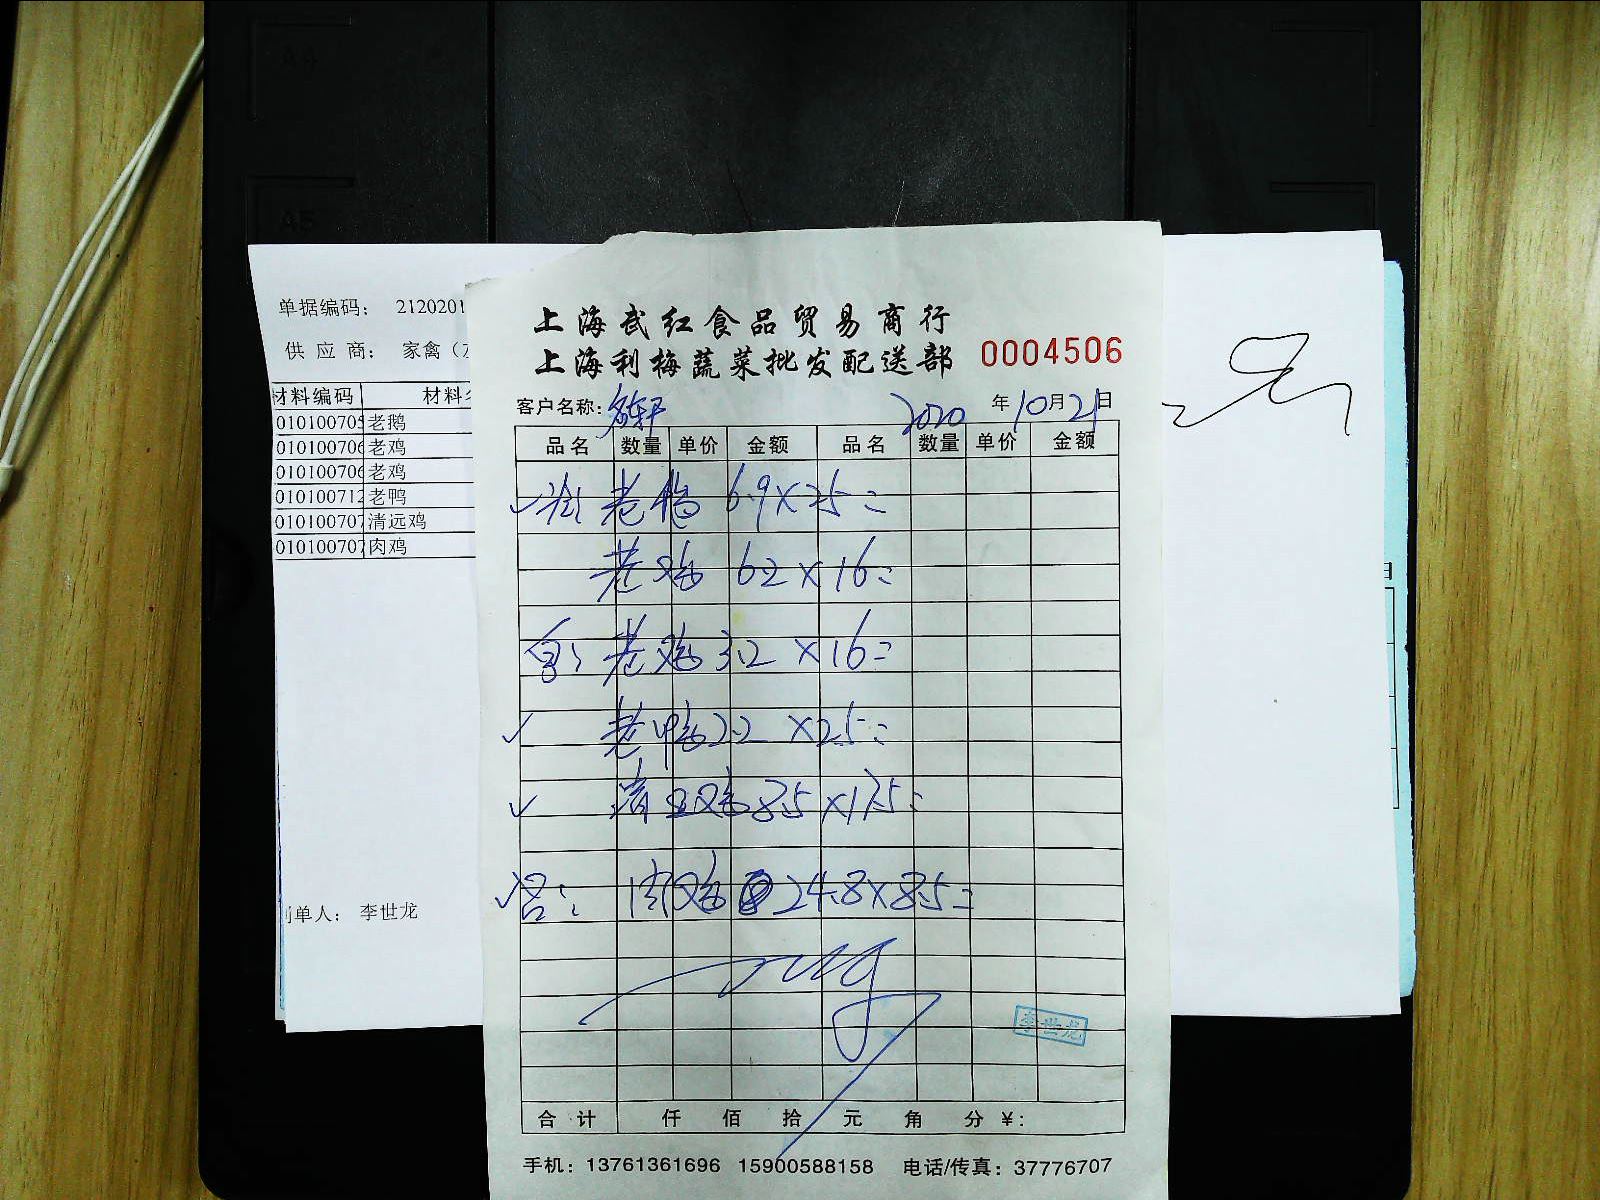 A4
A5
单据编码： 2120201
供 应 商： 家禽（
材料编码 材料
010100705 老鹅
010100706 老鸡
010100706 老鸡
010100712 老鸭
010100707 清远鸡
010100707 肉鸡
制单人： 李世龙
上海武红食品贸易商行
上海利梅蔬菜批发配送部 0004506
客户名称： 2020 年 10 月 21 日
品名 数量 单价 金额 品名 数量 单价 金额
老鹅 6.9×25=
老鸡 6.2×16=
老鸡 3.2×16=
老鸭 2.2×25=
清远鸡 8.5×17.5=
肉鸡 24.8×8.5=
李世龙
合 计 仟 佰 拾 元 角 分 ¥：
手机：13761361696 15900588158 电话/传真：37776707
日